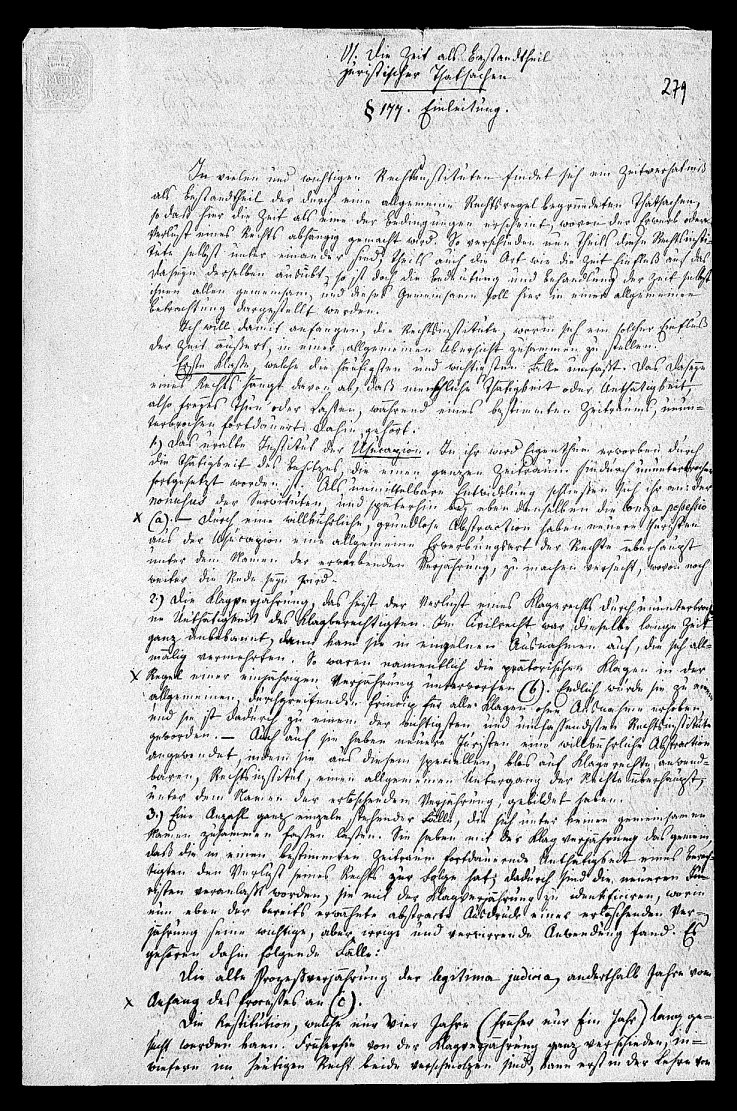 VI. Die Zeit als Bestandtheil
juristischer Thatsachen
279
§ 177. Einleitung.
In vielen und wichtigen Rechtsinstituten findet sich ein Zeitverhältniß
als Bestandtheil der durch eine allgemeine Rechtsregel begründeten Thatsachen,
so daß hier die Zeit als eine der Bedingungen erscheint, wovon der Erwerb oder
Verlust eines Rechts abhängig gemacht wird. So verschieden nun theils diese Rechtsinsti-
tute selbst unter einander sind, theils auch die Art wie die Zeit Einfluß auf das
Daseyn derselben ausübt, so ist doch die Bedeutung und Behandlung der Zeit selbst
ihnen allen gemeinsam, und dieses Gemeinsame soll hier in einer allgemeinen
Betrachtung dargestellt werden.
Ich will damit anfangen, die Rechtsinstitute, worin sich ein solcher Einfluß
der Zeit äußert, in einer allgemeinen Übersicht zusammen zu stellen.
Erste Klasse, welche die häufigsten und wichtigsten Fälle umfaßt. Das Daseyn
eines Rechts hängt davon ab, daß menschliche Thätigkeit oder Unthätigkeit,
also freyes Thun oder Lassen, während eines bestimmten Zeitraums, unun-
terbrochen fortdauert. Dahin gehört:
1.) Das uralte Institut der Usucapion. In ihr wird Eigenthum erworben durch
die Thätigkeit des Besitzes, die einen ganzen Zeitraum hindurch ununterbrochen
fortgesetzt worden ist. Als unmittelbare Entwicklung schließen sich ihr an der
nonusus der Servituten, und späterhin bey eben denselben die longa possessio
x (a). – Durch eine willkührliche, grundlose Abstraction haben neuere Juristen
aus der Usucapion eine allgemeine Erwerbungsart der Rechte überhaupt
unter dem Namen der erwerbenden Verjährung, zu machen versucht, wovon noch
weiter die Rede seyn wird.
2.) Die Klagverjährung, das heist der Verlust eines Klagerechts durch ununterbroche-
ne Unthätigkeit des Klagberechtigten. Im Civilrecht war dieselbe lange Zeit
ganz unbekannt, dann kam sie in einzelnen Ausnahmen auf, die sich all-
mälig vermehrten. So waren namentlich die prätorischen Klagen in der
x Regel einer einjährigen Verjährung unterworfen (b). Endlich wurde sie zu einem
allgemeinen, durchgreifenden Princip für alle Klagen ohne Ausnahme erhoben,
und sie ist dadurch zu einem der wichtigsten und umfassendsten Rechtsinstitute
geworden. – Auch auf sie haben neuere Juristen eine willkührliche Abstraction
angewendet, indem sie aus diesem speciellen, blos auf Klagerechte anwend-
baren, Rechtsinstitut, einen allgemeinen Untergang der Rechte überhaupt,
unter dem Namen der erlöschenden Verjährung, gebildet haben.
3.) Eine Anzahl ganz einzeln stehender Fälle, die sich unter keinen gemeinsamen
Namen zusammen fassen lassen. Sie haben mit der Klagverjährung das gemein,
daß die in einem bestimmten Zeitraum fortdauernde Unthätigkeit eines Berech-
tigten den Verlust seines Rechts zur Folge hat; dadurch sind die neueren Ju-
risten veranlaßt worden, sie mit der Klagverjährung zu identificiren, worin
nun eben der bereits erwähnte abstracte Ausdruck einer erlöschenden Ver-
jährung seine wichtige, aber irrige und verwirrende Anwendung fand. Es
gehören dahin folgende Fälle:
Die alte Prozeßverjährung der legitima judicia, anderthalb Jahre vom
x Anfang des Prozesses an (c).
Die Restitution, welche nur vier Jahre (früher nur Ein Jahr) lang ge-
sucht werden kann. Früherhin von der Klagverjährung ganz verschieden, in-
wiefern im heutigen Recht beide verschmolzen sind, kann erst in der Lehre von